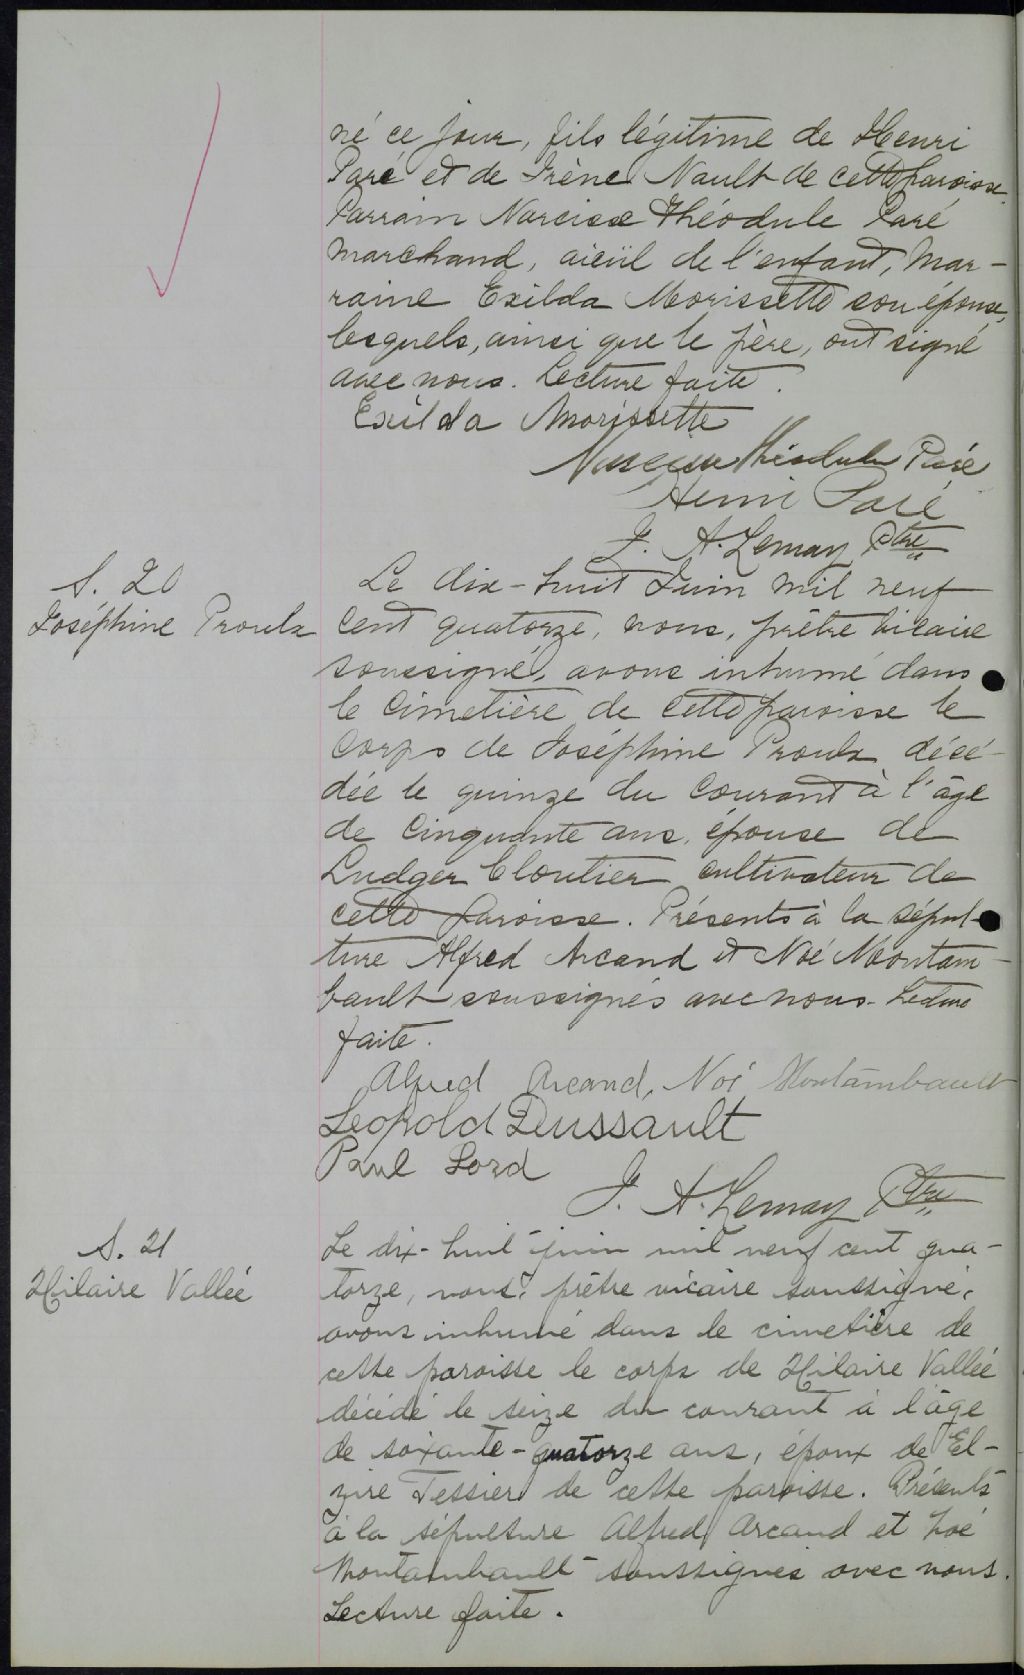 né ce jour, fils légitime de Henri
Paré et de Irène Nault de cette paroisse.
Parrain Narcisse Théodule Paré
marchand, aïeul de l'enfant, mar-
raine Exilda Morissette son épouse,
lesquels, ainsi que le père, ont signé
avec nous. Lecture faite.
Exilda Morissette
Narcisse Théodule Paré
Henri Paré
J. A. Lemay Ptre
S. 20
Joséphine Proulx
Le dix-huit Juin mil neuf
cent quatorze, nous, prêtre vicaire
soussigné, avons inhumé dans
le cimetière de cette paroisse le
corps de Joséphine Proulx décé-
dée le quinze du courant à l'âge
de cinquante ans, épouse de
Ludger Cloutier cultivateur de
cette paroisse. Présents à la sépul-
ture Alfred Arcand et Noé Montam-
bault soussignés avec nous. Lecture
faite.
Alfred Arcand, Noé Montambault
Leopold Dussault
Paul Lord
J. A. Lemay Ptre
S. 21
Hilaire Vallée
Le dix-huit juin mil neuf cent qua-
torze, nous, prêtre vicaire soussigné,
avons inhumé dans le cimetière de
cette paroisse le corps de Hilaire Vallée
décédé le seize du courant à l'âge
de soixante-quatorze ans, époux de El-
zire Tessier de cette paroisse. Présents
à la sépulture Alfred Arcand et Noé
Montambault soussignés avec nous.
Lecture faite.